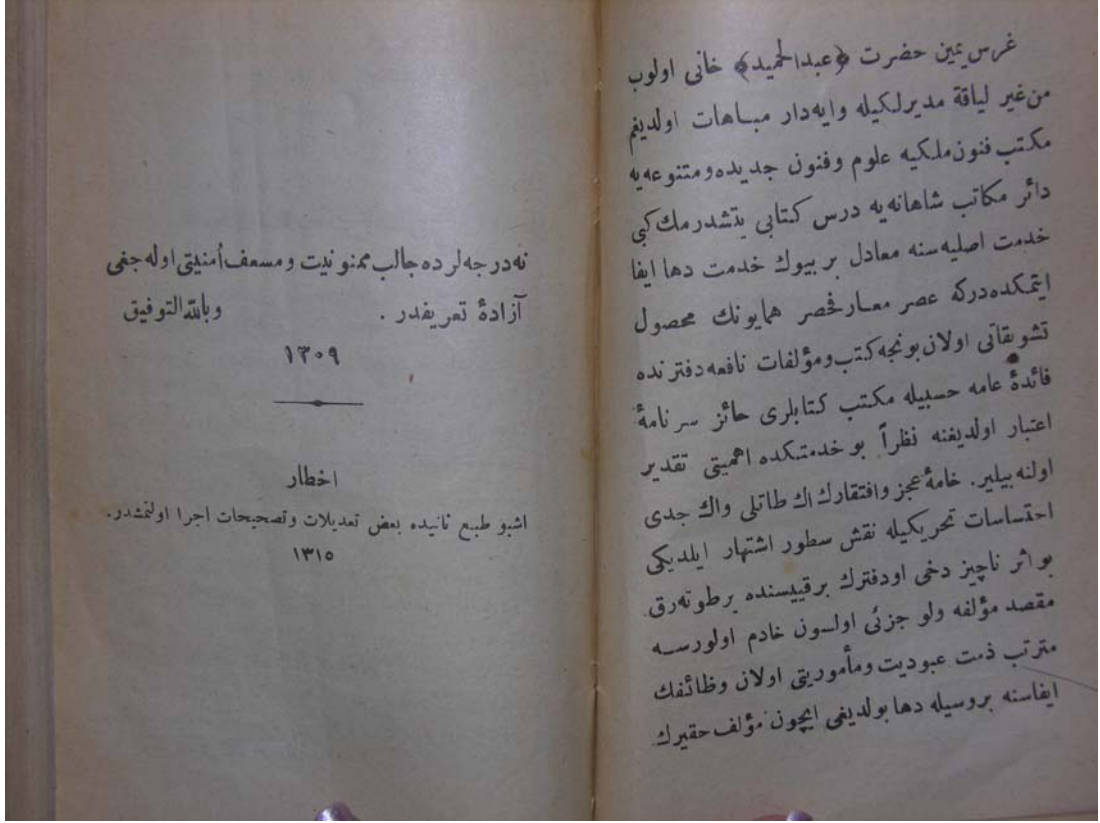 غرس يمين حضرت ﴿عبدالحميد﴾ خانى اولوب
من غير لياقة مديرلكيله وايه‌دار مباهات اولديغم
مكتب فنون ملكيه علوم وفنون جديده ومتنوعه‌يه
دائر مكاتب شاهانه‌يه درس كتابى يتشدرمك كبى
خدمت اصليه‌سنه معادل بر بيوك خدمت دها ايفا
ايتمكده‌دركه عصر معارفحصر همايونك محصول
تشويقاتى اولان بونجه كتب ومؤلفات نافعه دفترنده
فائدۀ عامه حسبيله مكتب كتابلرى حائز سرنامۀ
اعتبار اولديغنه نظراً بو خدمتكده اهميتى تقدير
اولنه‌بيلير. خامۀ عجز وافتقارك اك طاتلى واك جدى
احتساسات تحريكيله نقش سطور اشتهار ايلديكى
بو اثر ناچيز دخى اودفترك بر قييسنده بر طوته‌رق
مقصد مؤلفه ولو جزئى اولسون خادم اولورسه
مترتب ذمت عبوديت ومأموريتى اولان وظائفك
ايفاسنه بر وسيله دها بولديغى ايچون مؤلف حقيرك
نه درجه‌لرده جالب ممنونيت ومسعف اُمنيتى اوله‌جغى
آزادۀ تعريفدر . وبالله التوفيق
١٣٠٩
اخطار
اشبو طبع ثانيده بعض تعديلات وتصحيحات اجرا اولنمشدر.
١٣١٥